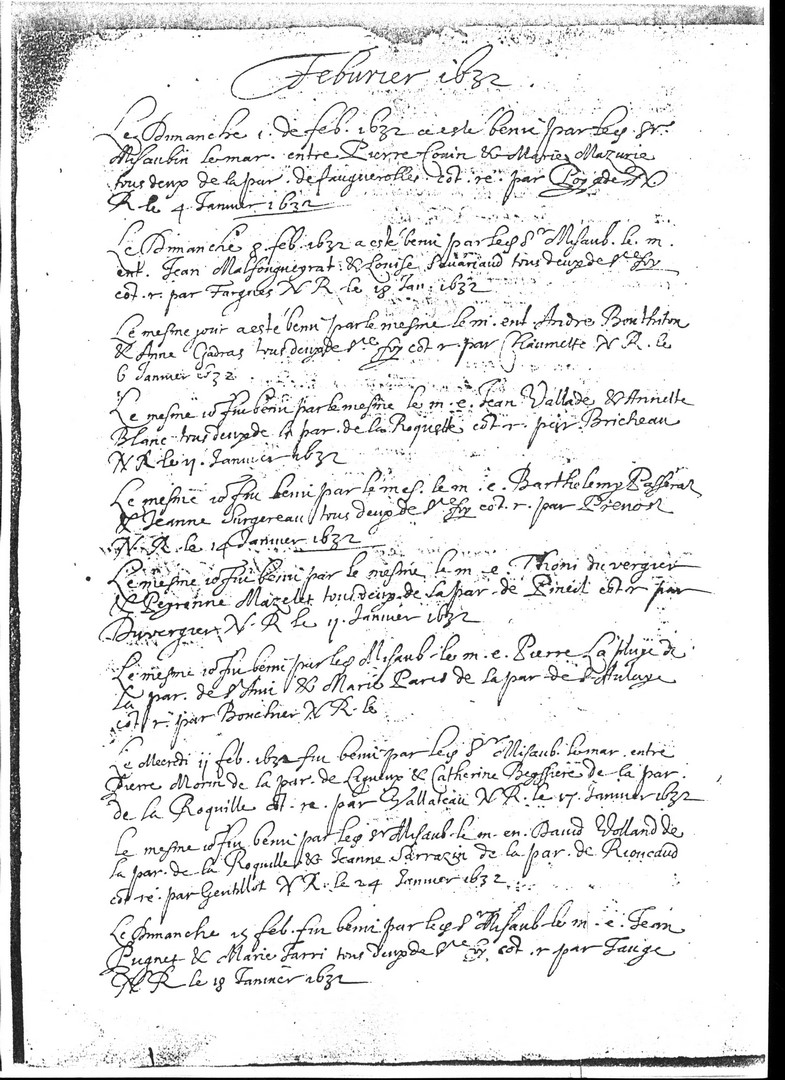 Feburier 1632
Le Dimanche 1. de feb. 1632 a este beni par led. Sr.
Misaubin le mar. entre Pierre Couin & Marie Mazurie
tous deux de la par. de fauguerolles cot. re. par
N R le 4 Januier 1632
Le Dimanche 8. feb. 1632 a esté beni par led. Sr Misaub. le. m.
ent. Jean & Louise tous deux de Ste foy
cot. r. par Fargues N R le 18 Jan. 1632
Le mesme jour a esté beni par le mesme le m. ent Andre Bouthiton
& Anne Gadras tous deux de Ste foy cot r. par Chaumette N. R. le
6 Januier 1632.
Le mesme io fut beni par le mesme le m. e. Jean Vallade & Annette
Blanc tous deux de la par. de la Roquette cot. r. par Bricheau
N R le 11. Januier 1632
Le mesme io fut beni par le mes. le m. e. Barthelemy Passerat
& Jeanne Surgereau tous deux de Ste foy cot. r. par Prevost
N. R. le 14 Januier 1632
Le mesme io fut beni par le mesme le m e. Thoni du vergier
& Peyranne Mazelet tous deux de la par. de Pineil cot r par
Duvergier N. R le 11. Januier 1632
Le mesme io fut beni par led Misaub. le m. e. Pierre La pluge de
la par. de St Aui & Marie Pares de la par de St Aulaye
cot r. par Bouchier N R. le
Le Mecrdi 11 feb. 1632 fut beni par led Sr Misaub. le mar. entre
Pierre Morin de la par. de Ligueux & Catherine de la par.
de la Roquille cot. re. par Vallateau N R. le 17. Januier 1632
Le mesme io fut beni par led Sr Misaub. le m. en. Dauid Volland de
la par. de la Roquille & Jeanne Sarrazin de la par. de Rioucaud
cot re. par Gentillot N R. le 24 Januier 1632
Le Dimanche 15 feb. fut beni par led Sr Misaub. le m. e. Jean
Pugnet & Marie Jarri tous deux de Ste foy. cot. r par Fauge
N R le 18 Januier 1632